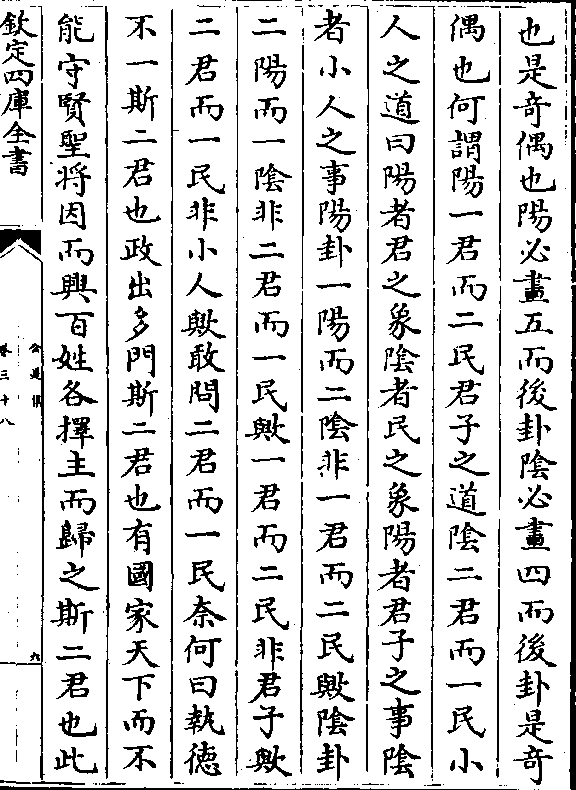 也是奇偶也陽必畫五而後卦陰必畫四而後卦是奇
偶也何謂陽一君而二民君子之道陰二君而一民小
人之道曰陽者君之象陰者民之象陽者君子之事陰
者小人之事陽卦一陽而二陰非一君而二民歟陰卦
二陽而一陰非二君而一民歟一君而二民非君子歟
二君而一民非小人歟敢問二君而一民奈何曰執德
不一斯二君也政出多門斯二君也有國家天下而不
能守賢聖將因而興百姓各擇主而歸之斯二君也此
欽定四庫全書
公是集
卷三十八
六